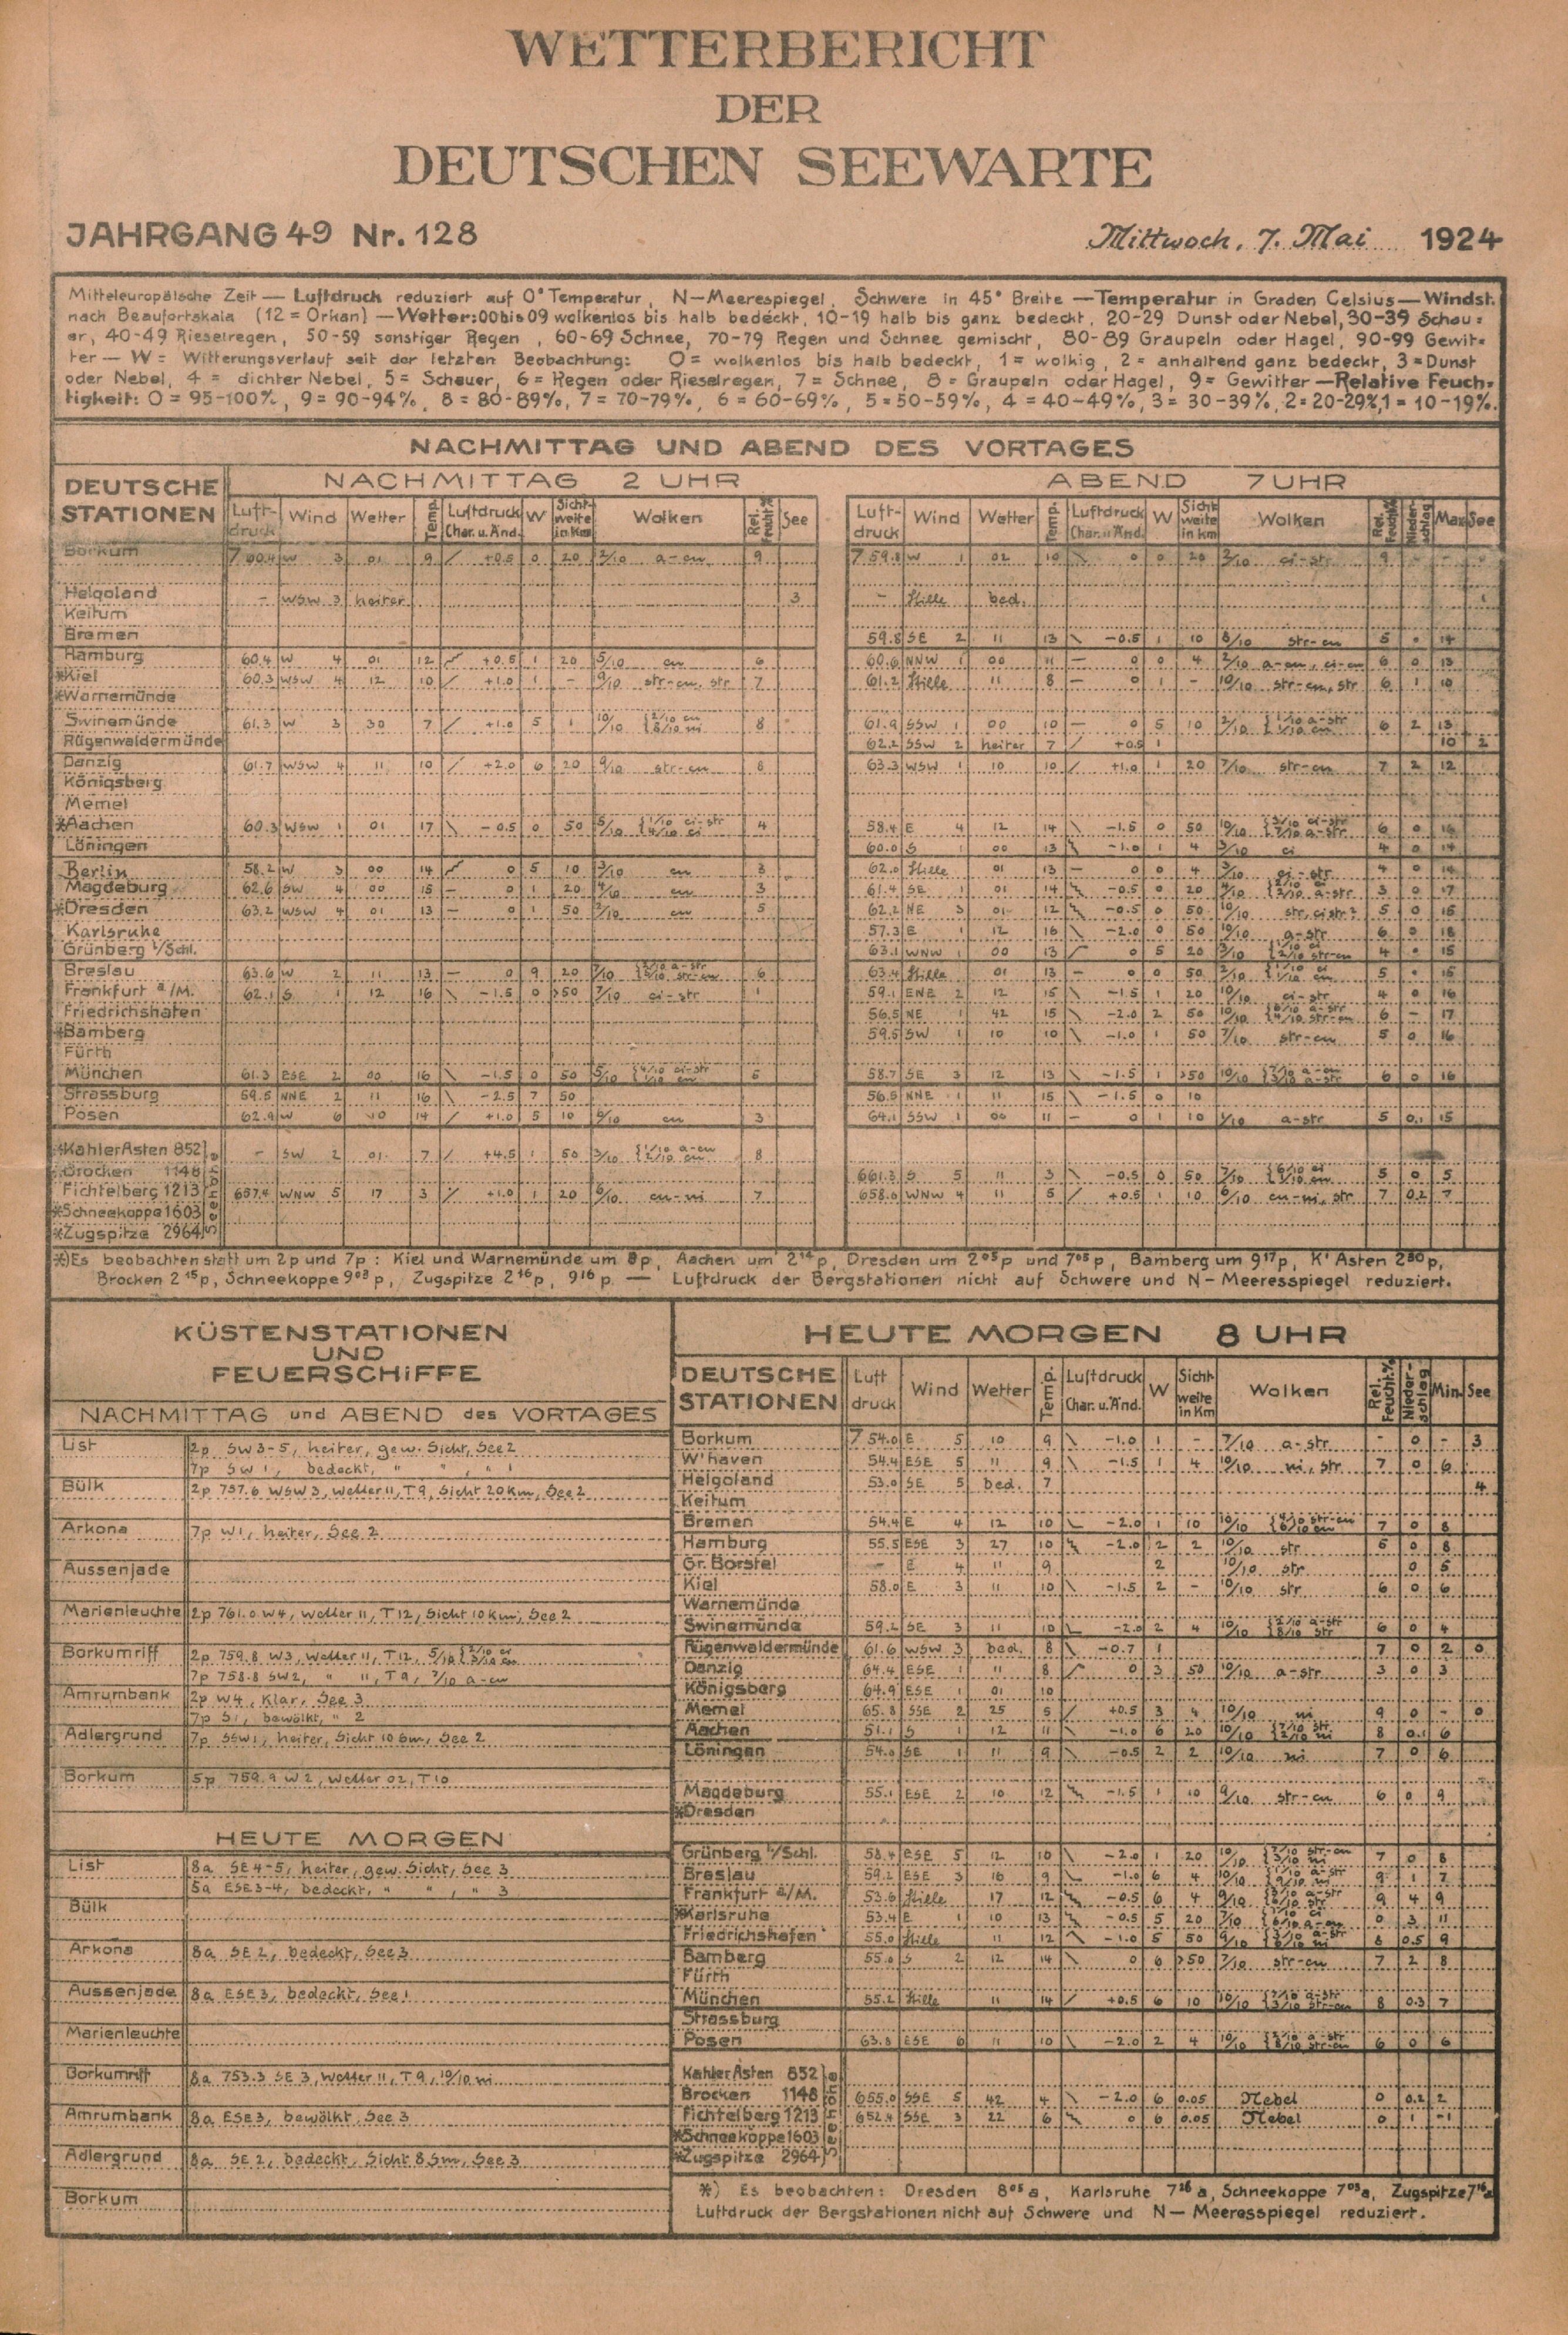 WETTERBERICHT
DER
DEUTSCHEN SEEWARTE
JAHRGANG 49 Nr. 128 Mittwoch, 7. Mai 1924
Mitteleuropäische Zeit — Luftdruck reduziert auf 0° Temperatur, N—Meerespiegel, Schwere in 45° Breite — Temperatur in Graden Celsius — Windst.
nach Beaufortskala (12 = Orkan) — Wetter: 00 bis 09 wolkenlos bis halb bedeckt, 10-19 halb bis ganz bedeckt, 20-29 Dunst oder Nebel, 30-39 Schau=
er, 40-49 Rieselregen, 50-59 sonstiger Regen, 60-69 Schnee, 70-79 Regen und Schnee gemischt, 80-89 Graupeln oder Hagel, 90-99 Gewit=
ter — W = Witterungsverlauf seit der letzten Beobachtung: 0 = wolkenlos bis halb bedeckt, 1 = wolkig, 2 = anhaltend ganz bedeckt, 3 = Dunst
oder Nebel, 4 = dichter Nebel, 5 = Schauer, 6 = Regen oder Rieselregen, 7 = Schnee, 8 = Graupeln oder Hagel, 9 = Gewitter — Relative Feuch=
tigkeit: 0 = 95-100%, 9 = 90-94%, 8 = 80-89%, 7 = 70-79%, 6 = 60-69%, 5 = 50-59%, 4 = 40-49%, 3 = 30-39%, 2 = 20-29%, 1 = 10-19%.
NACHMITTAG UND ABEND DES VORTAGES
DEUTSCHE STATIONEN NACHMITTAG 2 UHR ABEND 7 UHR
Luft-druck Wind Wetter Temp. Luftdruck Char. u. Änd. W Sicht-weite in Km Wolken Rel. Feucht.% See Luft-druck Wind Wetter Temp. Luftdruck Char. u. Änd. W Sicht weite in km Wolken Rel. Feucht.% Nieder-schlag Max See
Borkum 760.4 W 3 01 9 +0.5 0 20 2/10 a-cu 9 759.8 W 1 02 10 0 0 20 3/10 ci-str 9
Helgoland - WSW 3 heiter 3 - Stille bed. 1
Keitum
Bremen 59.8 SE 2 11 13 -0.5 1 10 8/10 str-cu 5 14
Hamburg 60.4 W 4 01 12 +0.5 1 20 5/10 cu 6 60.6 NNW 1 00 11 — 0 0 4 2/10 a-cu, ci-cu 6 0 13
*Kiel 60.3 WSW 4 12 10 +1.0 1 - 9/10 str-cu, str 7 61.2 Stille 11 8 — 0 1 - 10/10 str-cu, str 6 1 10
*Warnemünde
Swinemünde 61.3 W 3 30 7 +1.0 5 1 10/10 {2/10 cu 8/10 ni 8 61.9 SSW 1 00 10 — 0 5 10 2/10 {1/10 a-str 1/10 cu 6 2 13
Rügenwaldermünde 62.2 SSW 2 heiter 7 +0.5 1 10 2
Danzig 61.7 WSW 4 11 10 +2.0 6 20 9/10 str-cu 8 63.3 WSW 1 10 10 +1.0 1 20 7/10 str-cu 7 2 12
Königsberg
Memel
*Aachen 60.3 WSW 1 01 17 -0.5 0 50 5/10 {1/10 ci-str 4/10 ci 4 58.4 E 4 12 14 -1.5 0 50 10/10 {3/10 ci-str 7/10 a-str 6 0 16
Löningen 60.0 S 1 00 13 -1.0 1 4 3/10 ci 4 0 14
Berlin 58.2 W 3 00 14 0 5 10 3/10 cu 3 62.0 Stille 01 13 — 0 0 4 3/10 ci-str 4 0 14
Magdeburg 62.6 SW 4 00 15 — 0 1 20 4/10 cu 3 61.4 SE 1 01 14 -0.5 0 20 4/10 {2/10 ci 2/10 a-str 3 0 17
*Dresden 63.2 WSW 4 01 13 — 0 1 50 2/10 cu 5 62.2 NE 3 01 12 -0.5 0 50 10/10 str, cistr? 5 0 15
Karlsruhe 57.3 E 1 12 16 -2.0 0 50 10/10 a-str 6 0 18
Grünberg i/Schl. 63.1 WNW 1 00 13 0 5 20 3/10 {1/10 ci 2/10 str-cu 4 15
Breslau 63.6 W 2 11 13 — 0 9 20 7/10 {2/10 a-str 5/10 str-cu 6 63.4 Stille 01 13 — 0 0 50 2/10 {1/10 ci 1/10 cu 5 15
Frankfurt a/M. 62.1 S 1 12 16 -1.5 0 >50 7/10 ci-str 1 59.1 ENE 2 12 15 -1.5 1 20 10/10 ci-str 4 0 16
Friedrichshafen 56.5 NE 1 42 15 -2.0 2 50 10/10 {6/10 a-str 4/10 str-cu 6 - 17
*Bamberg 59.5 SW 1 10 10 -1.0 1 50 7/10 str-cu 5 0 16
Fürth
München 61.3 ESE 2 00 16 -1.5 0 50 5/10 {4/10 ci-str 1/10 cu 5 58.7 SE 3 12 13 -1.5 1 >50 10/10 {7/10 a-cu 3/10 a-str 6 0 16
Strassburg 59.5 NNE 2 11 16 -2.5 7 50 56.5 NNE 1 11 15 -1.5 0 10
Posen 62.9 W 6 10 14 +1.0 5 10 6/10 cu 3 64.1 SSW 1 00 11 — 0 1 10 1/10 a-str 5 0.1 15
*Kahler Asten 852 - SW 2 01 7 +4.5 1 50 3/10 {1/10 a-cu 2/10 cu 8
*Brocken 1148 661.3 S 5 11 3 -0.5 0 50 7/10 {6/10 ci 1/10 cu 5 0 5
Fichtelberg 1213 657.4 WNW 5 17 3 +1.0 1 20 6/10 cu-ni 7 658.6 WNW 4 11 5 +0.5 1 10 6/10 cu-ni, str 7 0.2 7
*Schneekoppe 1603
*Zugspitze 2964
Seehöhe
*) Es beobachten statt um 2p und 7p: Kiel und Warnemünde um 8p, Aachen um 2¹⁴p, Dresden um 2⁰⁵p und 7⁰⁵p, Bamberg um 9¹⁷p, K' Asten 2³⁰p,
Brocken 2¹⁵p, Schneekoppe 9⁰³p, Zugspitze 2¹⁶p, 9¹⁶p. — Luftdruck der Bergstationen nicht auf Schwere und N—Meeresspiegel reduziert.
KÜSTENSTATIONEN
UND
FEUERSCHIFFE
NACHMITTAG und ABEND des VORTAGES
List 2p SW 3-5, heiter, gew. Sicht, See 2
7p SW 1, bedeckt, " " , " 1
Bülk 2p 757.6 WSW 3, Wetter 11, T 9, Sicht 20 Km, See 2
Arkona 7p W 1, heiter, See 2
Aussenjade
Marienleuchte 2p 761.0 W 4, Wetter 11, T 12, Sicht 10 Km, See 2
Borkumriff 2p 759.8 W 3, Wetter 11, T 12, 5/10 {2/10 ci 3/10 cu
7p 758.8 SW 2, " 11, T 9, 7/10 a-cu
Amrumbank 2p W 4, Klar, See 3
7p S 1, bewölkt, " 2
Adlergrund 7p SSW 1, heiter, Sicht 10 Sm, See 2
Borkum 5p 759.9 W 2, Wetter 02, T 10
HEUTE MORGEN
List 8a SE 4-5, heiter, gew. Sicht, See 3
5a ESE 3-4, bedeckt, " " , " 3
Bülk
Arkona 8a SE 2, bedeckt, See 3
Aussenjade 8a ESE 3, bedeckt, See 1
Marienleuchte
Borkumriff 8a 753.3 SE 3, Wetter 11, T 9, 10/10 ni
Amrumbank 8a ESE 3, bewölkt, See 3
Adlergrund 8a SE 2, bedeckt, Sicht 8 Sm, See 3
Borkum
HEUTE MORGEN 8 UHR
DEUTSCHE STATIONEN Luft druck Wind Wetter Temp. Luftdruck Char. u. Änd. W Sicht-weite in Km Wolken Rel. Feucht.% Nieder-schlag Min. See
Borkum 754.0 E 5 10 9 -1.0 1 - 7/10 a-str - 0 - 3
W'haven 54.4 ESE 5 11 9 -1.5 1 4 10/10 ni, str 7 0 6
Helgoland 53.0 SE 5 bed. 7 4
Keitum
Bremen 54.4 E 4 12 10 -2.0 1 10 10/10 {4/10 str-cu 6/10 cu 7 0 8
Hamburg 55.5 ESE 3 27 10 -2.0 2 2 10/10 str 6 0 8
Gr. Borstel E 4 11 9 2 10/10 str 0 5
Kiel 58.0 E 3 11 10 -1.5 2 - 10/10 str 6 0 6
Warnemünde
Swinemünde 59.2 SE 3 11 10 -2.0 2 4 10/10 {2/10 a-str 8/10 str 6 0 4
Rügenwaldermünde 61.6 WSW 3 bed. 8 -0.7 1 7 0 2 0
Danzig 64.4 ESE 1 11 8 0 3 50 10/10 a-str 3 0 3
Königsberg 64.9 ESE 1 01 10
Memel 65.8 SSE 2 25 5 +0.5 3 4 10/10 ni 9 0 - 0
Aachen 51.1 S 1 12 11 -1.0 6 20 10/10 {7/10 str 2/10 ni 8 0.1 6
Löningen 54.0 SE 1 11 9 -0.5 2 2 10/10 ni 7 0 6
Magdeburg 55.1 ESE 2 10 12 -1.5 1 10 9/10 str-cu 6 0 9
*Dresden
Grünberg i/Schl. 58.4 ESE 5 12 10 -2.0 1 20 10/10 {7/10 str-cu 3/10 ni 7 0 8
Breslau 59.2 ESE 3 16 9 -1.0 6 4 10/10 {1/10 a-str 9/10 ni 9 1 7
Frankfurt a/M. 53.6 Stille 17 12 -0.5 6 4 9/10 {3/10 a-str 6/10 str 9 4 9
*Karlsruhe 53.4 E 1 10 13 -0.5 5 20 7/10 {1/10 ci 6/10 a-cu 0 3 11
Friedrichshafen 55.0 Stille 11 12 -1.0 5 50 9/10 {3/10 a-str 6/10 ni 8 0.5 9
Bamberg 55.0 S 2 12 14 0 6 >50 7/10 str-cu 7 2 8
Fürth
München 55.2 Stille 11 14 +0.5 6 10 10/10 {7/10 a-str 3/10 str-cu 8 0.3 7
Strassburg
Posen 63.8 ESE 6 11 10 -2.0 2 4 10/10 {2/10 a-str 8/10 str-cu 6 0 6
Kahler Asten 852
Brocken 1148 655.0 SSE 5 42 4 -2.0 6 0.05 Nebel 0 0.2 2
Fichtelberg 1213 652.4 SSE 3 22 6 0 6 0.05 Nebel 0 1 -1
*Schneekoppe 1603
*Zugspitze 2964
Seehöhe
*) Es beobachten: Dresden 8⁰⁵a, Karlsruhe 7²⁶a, Schneekoppe 7⁰³a, Zugspitze 7¹⁶a
Luftdruck der Bergstationen nicht auf Schwere und N—Meeresspiegel reduziert.